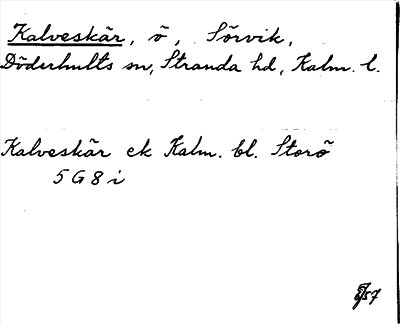 Kalveskär, ö, Sörvik,
Döderhults sn, Stranda hd, Kalm. l.
Kalveskär ek Kalm. bl. Storö
5 G 8 i